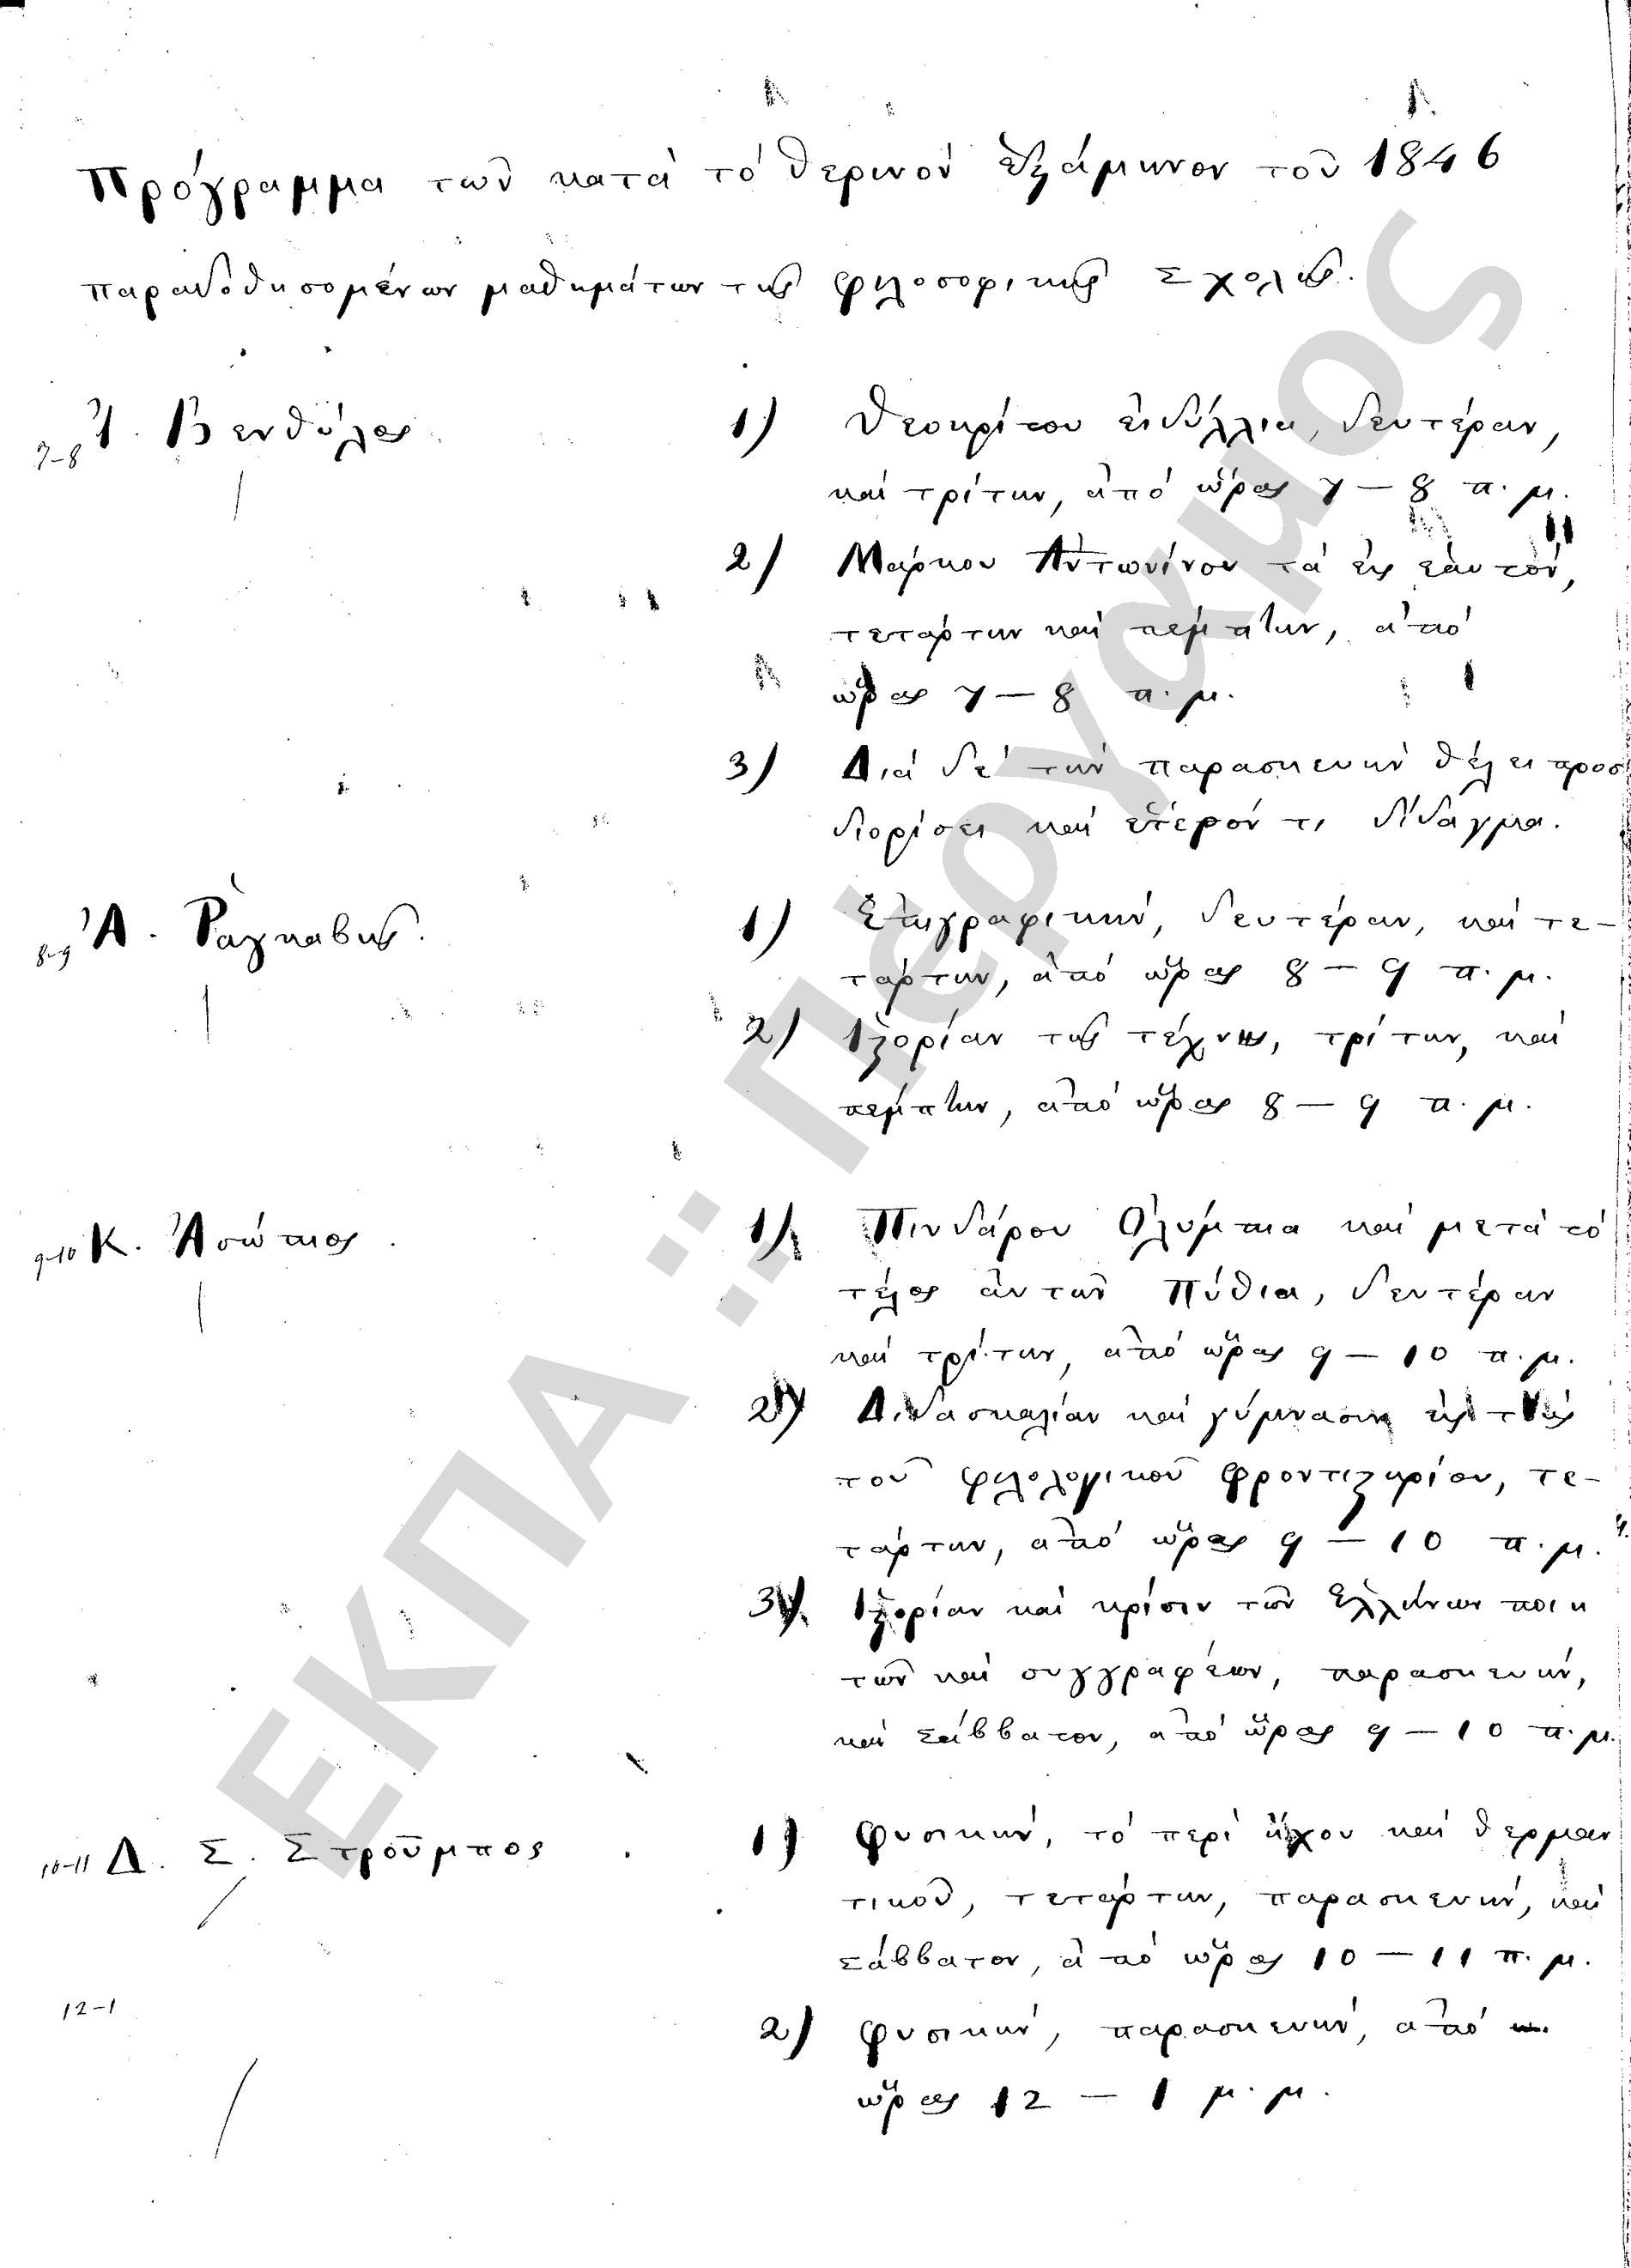 Πρόγραμμα τῶν κατὰ τὸ θερινὸν ἑξάμηνον τοῦ 1846
παραδοθησομένων μαθημάτων τῆς φιλοσοφικῆς Σχολῆς.
7-8 Ἰ. Βενθύλος. 1) Θεοκρίτου εἰδύλλια, δευτέραν,
καὶ τρίτην, ἀπὸ ὥρας 7 — 8 π. μ.
2) Μάρκου Ἀντωνίνου τὰ εἰς ἑαυτόν,
τετάρτην καὶ πέμπτην, ἀπὸ
ὥρας 7 — 8 π. μ.
3) Διὰ δὲ τὴν παρασκευὴν θέλει προσ
διορίσει καὶ ἕτερόν τι δίδαγμα.
8-9 Ἀ. Ῥαγκαβῆς. 1) Ἐπιγραφικήν, δευτέραν, καὶ τε-
τάρτην, ἀπὸ ὥρας 8 — 9 π. μ.
2) Ἱστορίαν τῆς τέχνης, τρίτην, καὶ
πέμπτην, ἀπὸ ὥρας 8 — 9 π. μ.
9-10 Κ. Ἀσώπιος. 1) Πινδάρου Ὀλύμπια καὶ μετὰ τὸ
τέλος αὐτῶν Πύθια, δευτέραν
καὶ τρίτην, ἀπὸ ὥρας 9 — 10 π. μ.
2) Διδασκαλίαν καὶ γύμνασιν εἰς τοὺς
τοῦ φιλολογικοῦ φροντιστηρίου, τε-
τάρτην, ἀπὸ ὥρας 9 — 10 π. μ.
3) Ἱστορίαν καὶ κρίσιν τῶν Ἑλλήνων ποιη
τῶν καὶ συγγραφέων, παρασκευήν,
καὶ Σάββατον, ἀπὸ ὥρας 9 — 10 π. μ.
10-11 Δ. Σ. Στροῦμπος. 1) Φυσικήν, τὸ περὶ ἤχου καὶ θερμαν
τικοῦ, τετάρτην, παρασκευήν, καὶ
Σάββατον, ἀπὸ ὥρας 10 — 11 π. μ.
12-1 2) Φυσικήν, παρασκευήν, ἀπὸ
ὥρας 12 — 1 μ. μ.
ΕΚΠΑ :: Πέργαμος